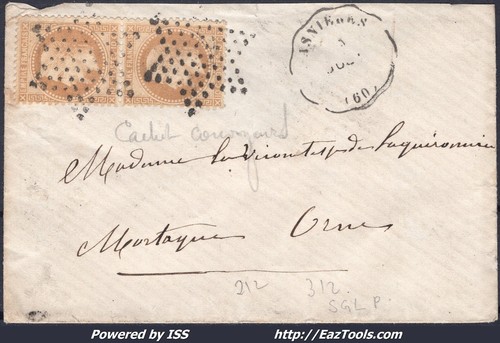 ASNIERES
5
(60)
Cachet convoyeurs
Madame la Vicomtesse de
Mortagne Orne
212 312.
SGL P.
Powered by ISS http://EazTools.com